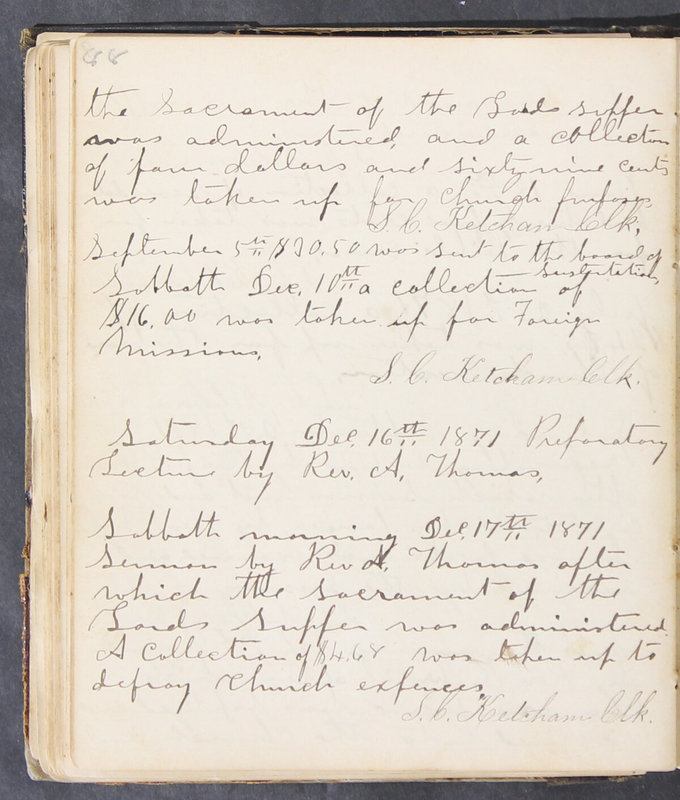 88
the Sacrament of the Lords supper
was administered, and a collection
of four dollars and sixty nine cents
was taken up for church purposes.
S. C. Ketcham Clk.
September 5th $30.50 was sent to the board of
Sustentation,
Sabbath Dec. 10th a collection of
$16.00 was taken up for Foreign
Missions.
S. C. Ketcham Clk.
Saturday Dec. 16th 1871 Preparatory
Lecture by Rev. A. Thomas.
Sabbath morning Dec. 17th 1871
Sermon by Rev A. Thomas after
which the Sacrament of the
Lords Supper was administered.
A Collection of $4.68 was taken up to
defray Church expences.
S. C. Ketcham Clk.